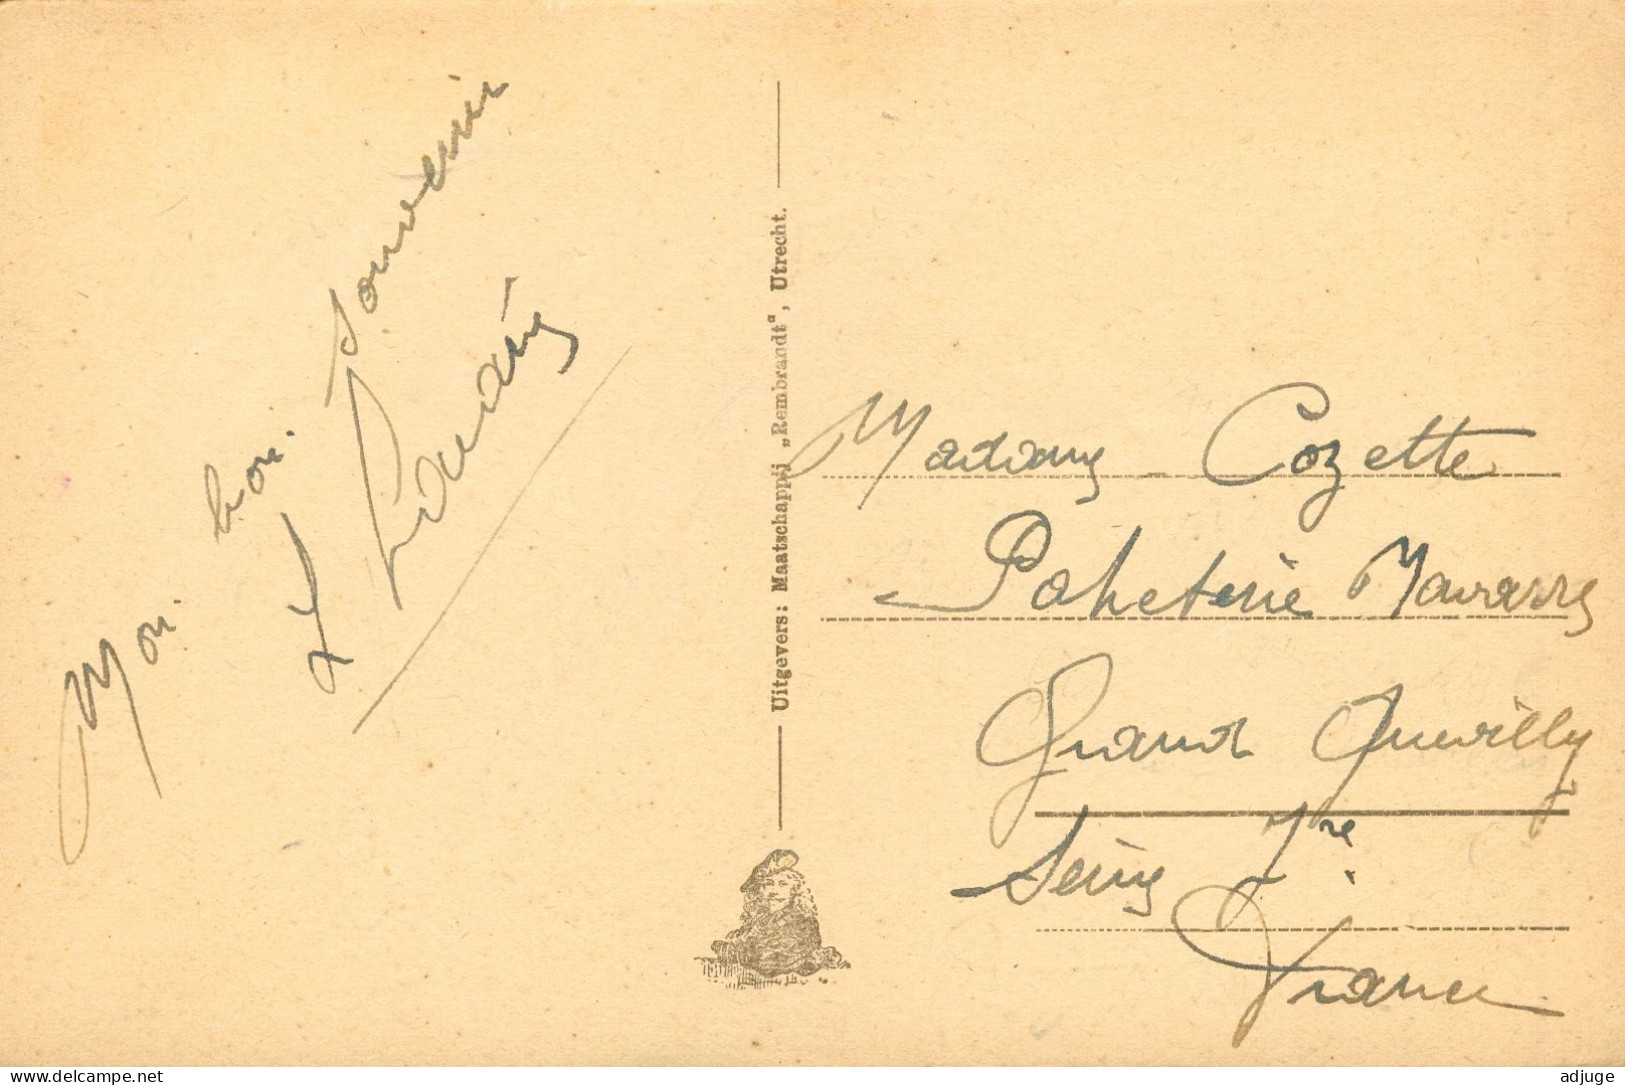 Mon bon souvenir
Uitgevers: Maatschappij „Rembrandt“, Utrecht.
Madame Cozette
Papeterie Navarre
Grand Quevilly
Seine Ire
France
www.delcampe.net
adjuge